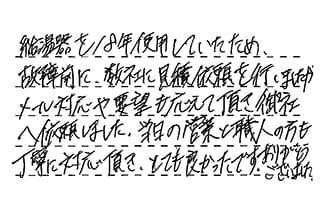 給湯器を18年使用していたため、
故障前に、数社に見積依頼を行いましたが
メール対応や要望も応えて頂き御社
へ依頼しました。当日の営業と職人の方も
丁寧に対応頂き、とても良かったです。ありがとうございました。